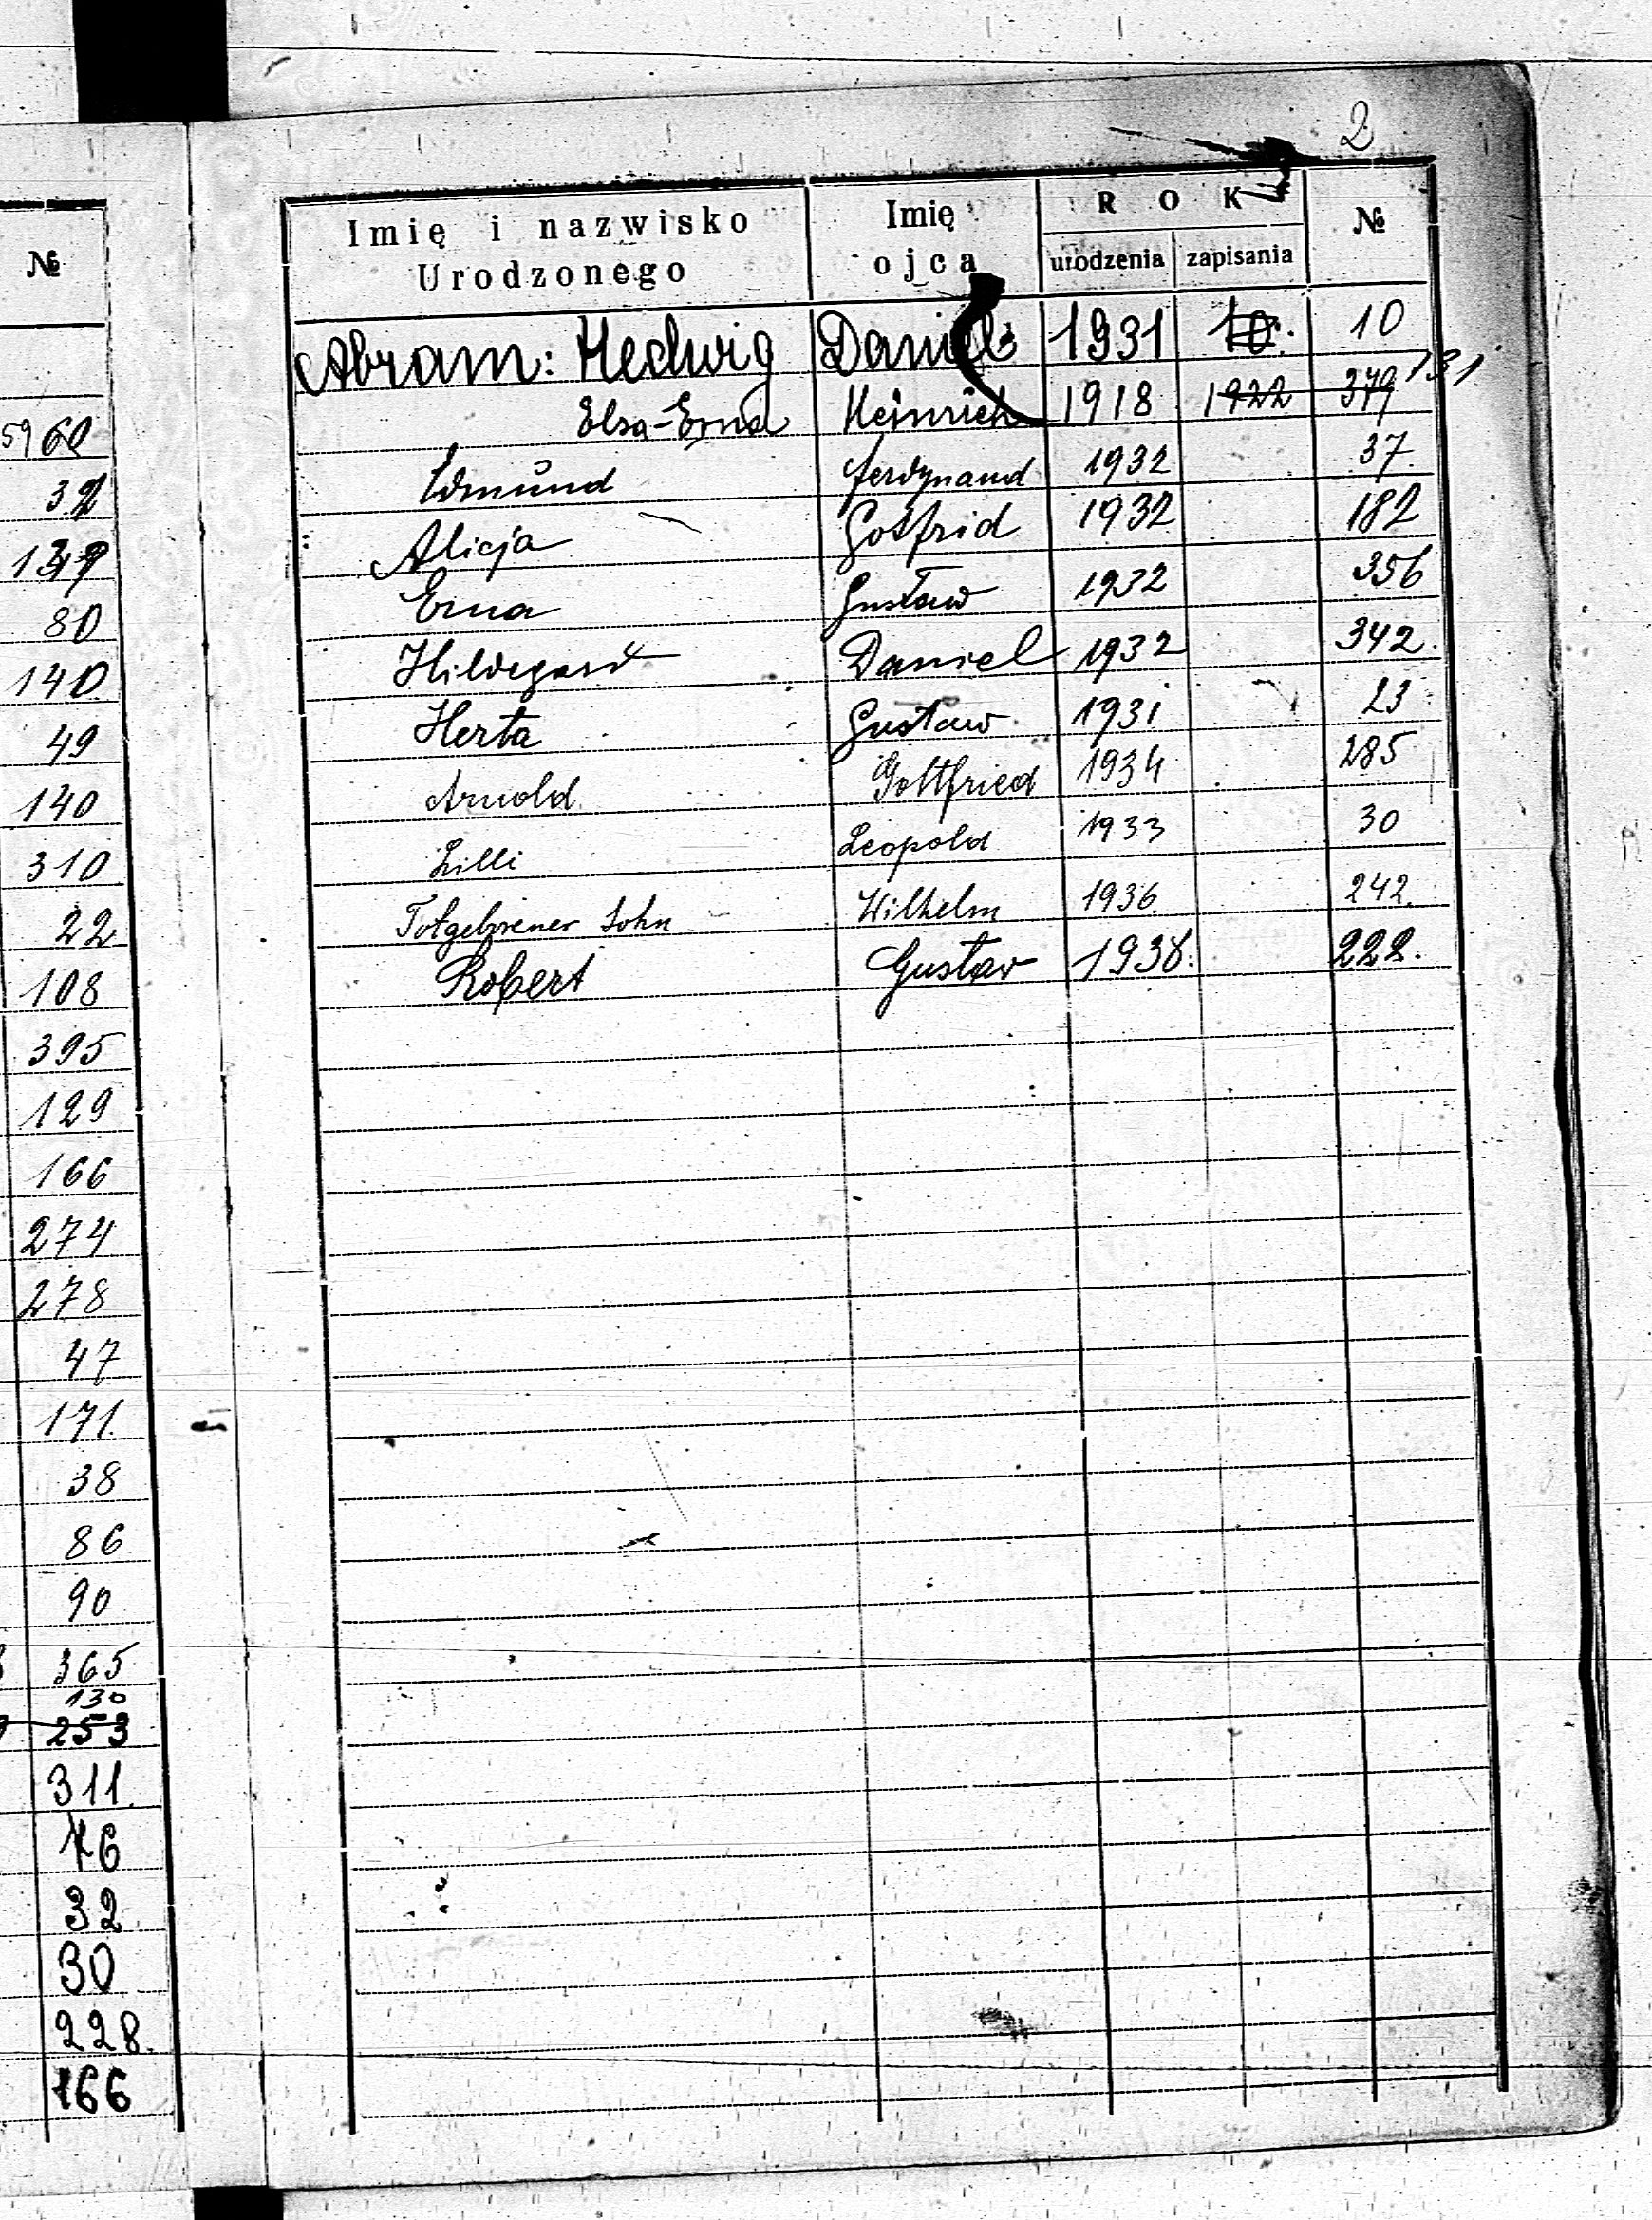 2
№
Imię i nazwisko Urodzonego
Imię ojca
ROK
urodzenia
zapisania
№
Abram: Hedwig Daniel 1931 10. 10
Elsa-Erna Heinrich 1918 1922 379 131
Edmund Ferdynand 1932 37.
Alicja Gotfrid 1932 182
Erna Gustaw 1932 356
Hildegard Daniel 1932 342.
Herta Gustaw 1931 23
Arnold Gottfried 1934 285
Lilli Leopold 1933 30
Totgeborener Sohn Wilhelm 1936. 242.
Robert Gustav 1938. 222.
80
140
49
140
310
22
108
395
129
166
274
278
47
171.
38
86
90
365
130
253
311.
32
30
228.
166